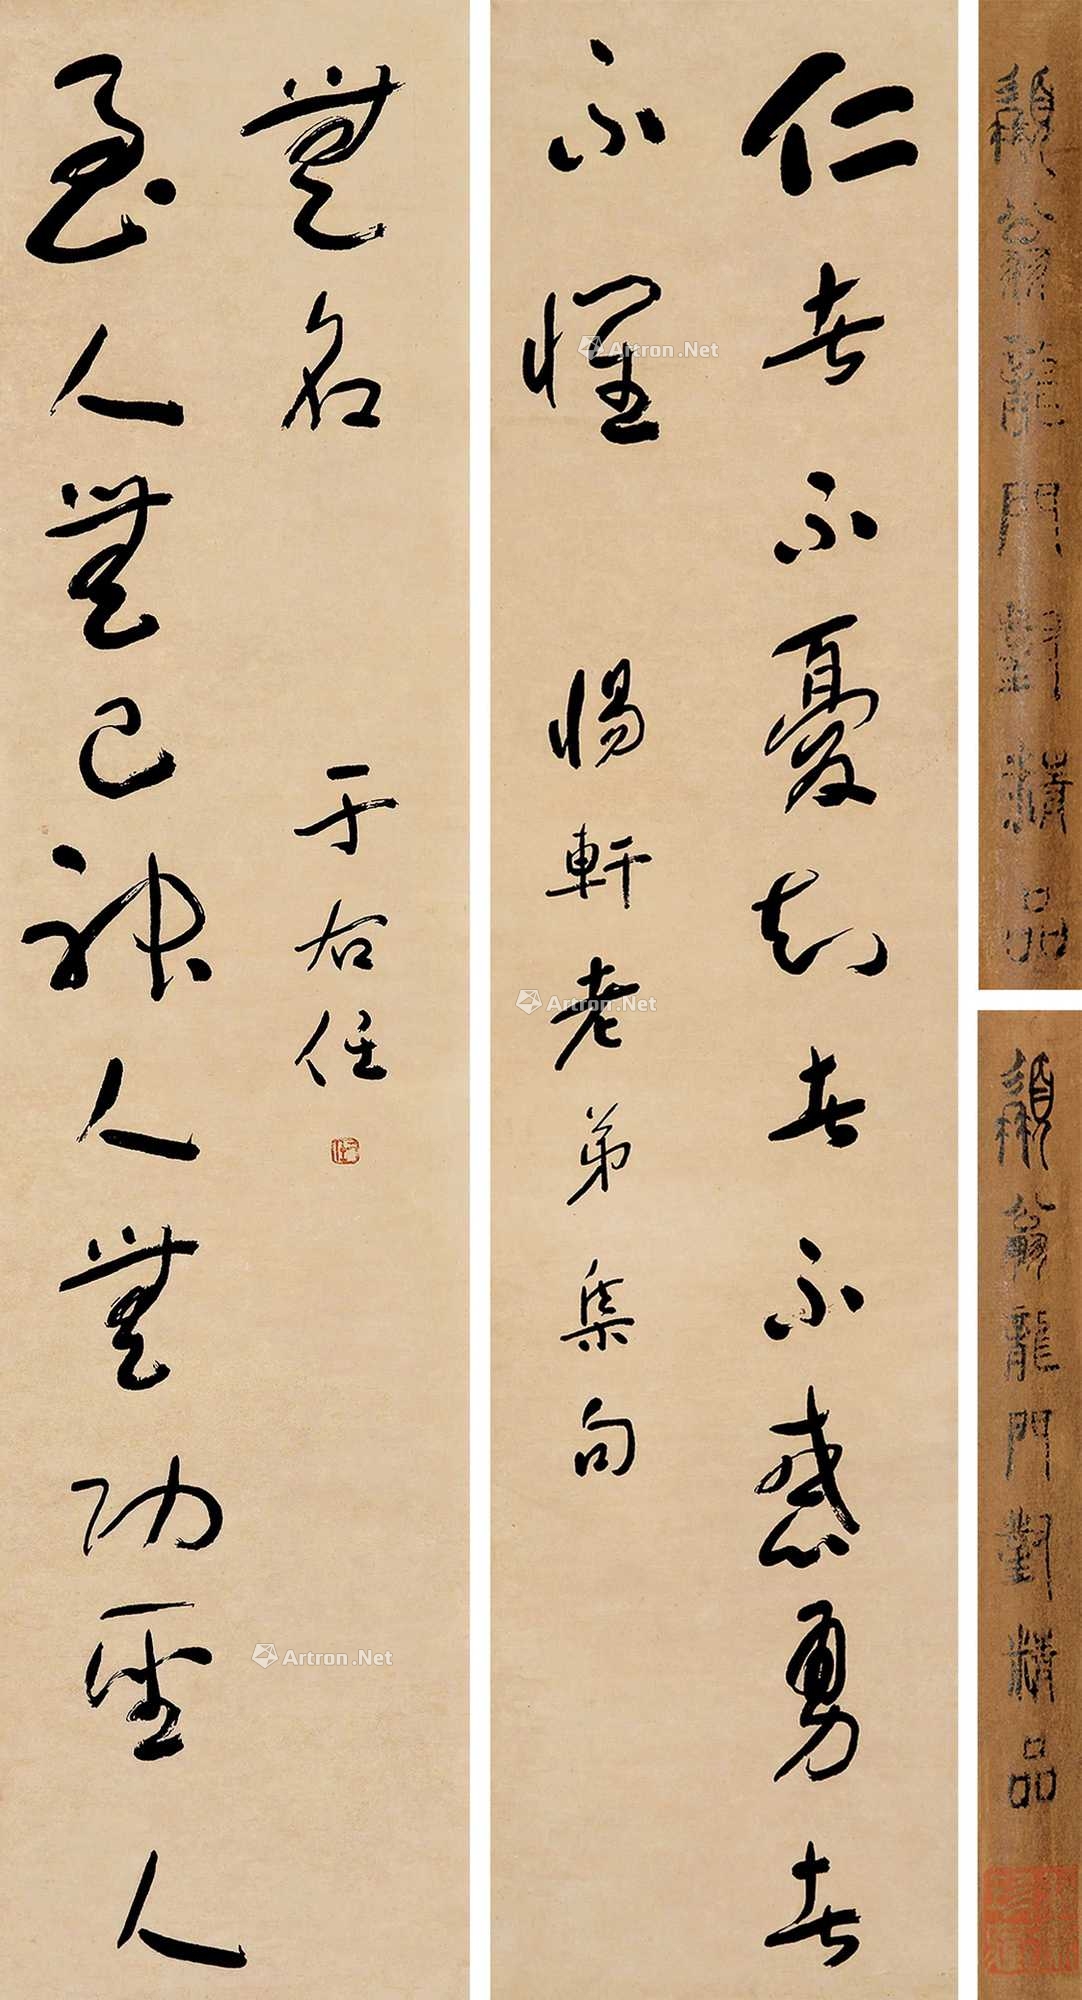 仁者不憂知者不惑勇者
不懼
惕軒老弟集句
至人無己神人無功聖人
無名
于右任
右任
髯翁龍門對精品
髯翁龍門對精品
Artron.Net
Artron.Net
Artron.Net
Artron.Net